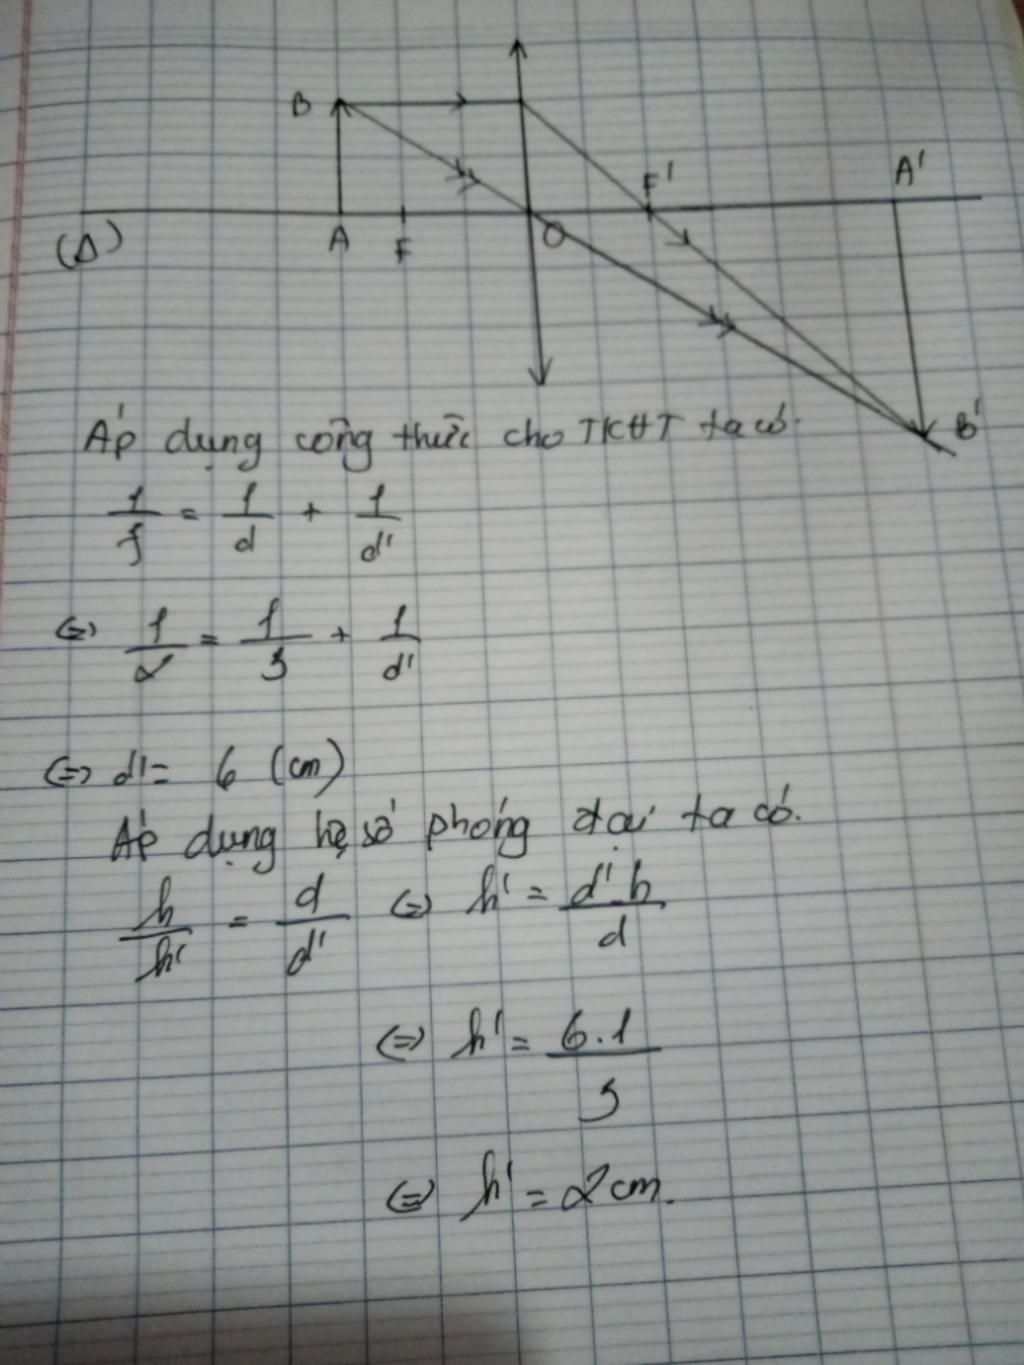 B
F'
A'
(Δ)
A
F
O
B'
Áp dụng công thức cho TKHT ta có.
1/f = 1/d + 1/d'
(=) 1/2 = 1/3 + 1/d'
(=) d' = 6 (cm)
Áp dụng hệ số phóng đại ta có.
h/h' = d/d' (=) h' = d'.h/d
(=) h' = 6.1/3
(=) h' = 2cm.